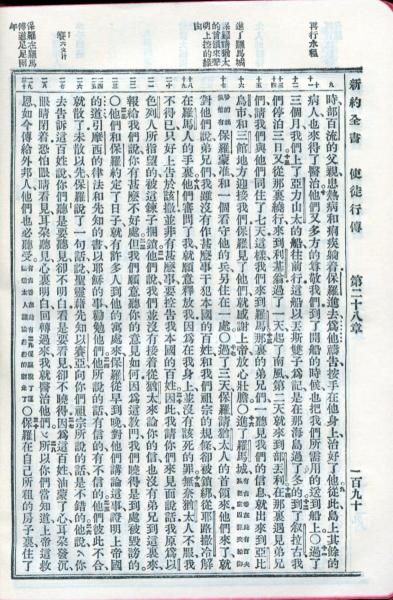 新約全書 使徒行傳 第二十八章 一百九十
再行水程
進了羅馬城
保羅請猶太的首領來聲明上控的緣由
保羅在羅馬傳道足足兩年
時部百流的父親患熱病和痢疾躺着保羅進去爲他禱告按手在他身上治好了他從此島上其餘的
病人也來得了醫治他們又多方的尊敬我們到了開船的時候也把我們所需用的送到船上○過了
三個月我們上了亞力山太的船往前行這船以丟斯雙子爲記是在那海島過了冬的到了叙拉古我
們停泊三日又從那裏繞行來到利基翁過了一天起了南風第二天就來到部丟利在那裏遇見弟兄
們請我們與他們同住了七天這樣我們來到羅馬那裏的弟兄們一聽見我們的信息就出來到亞比
烏市和三館地方迎接我們保羅見了他們就感謝上帝放心壯膽○進了羅馬城
保羅蒙准和一個看守他的兵另住在一處○過了三天保羅請猶太人的首領來他們來了就
對他們說弟兄們我雖沒有作甚麼事干犯本國的百姓和我們祖宗的規條卻被鎖綁從耶路撒冷解
在羅馬人的手裏他們審問了我就願意釋放我因爲在我身上並沒有該死的罪無奈猶太人不服我
不得已只好上告於該撒並非有甚麼事要控告我本國的百姓因此我請你們來見面說話我原爲以
色列人所指望的被這鍊子捆鎖他們說我們並沒有接着從猶太來論你的信也沒有弟兄到這裏來
報給我們說你有甚麼不好處但我們願意聽你的意見如何因爲這教門我們曉得是到處被毀謗的
○他們和保羅約定了日子就有許多人到他的寓處來保羅從早到晚對他們講論這事證明上帝國
的道引摩西的律法和先知的書以耶穌的事勸勉他們他所說的話有信的有不信的他們彼此不合
就散了未散以先保羅說了一句話說聖靈藉先知以賽亞向你們祖宗所說的話是不錯的他說你
去告訴這百姓說你們聽是要聽見卻不明白看是要看見卻不曉得因爲這百姓油蒙了心耳朵發沉
眼睛閉着恐怕眼睛看見耳朵聽見心裏明白回轉過來我就醫治他們所以你們當知道上帝這救
恩如今傳給外邦人他們也必聽受○保羅在自己所租的房子裏住了